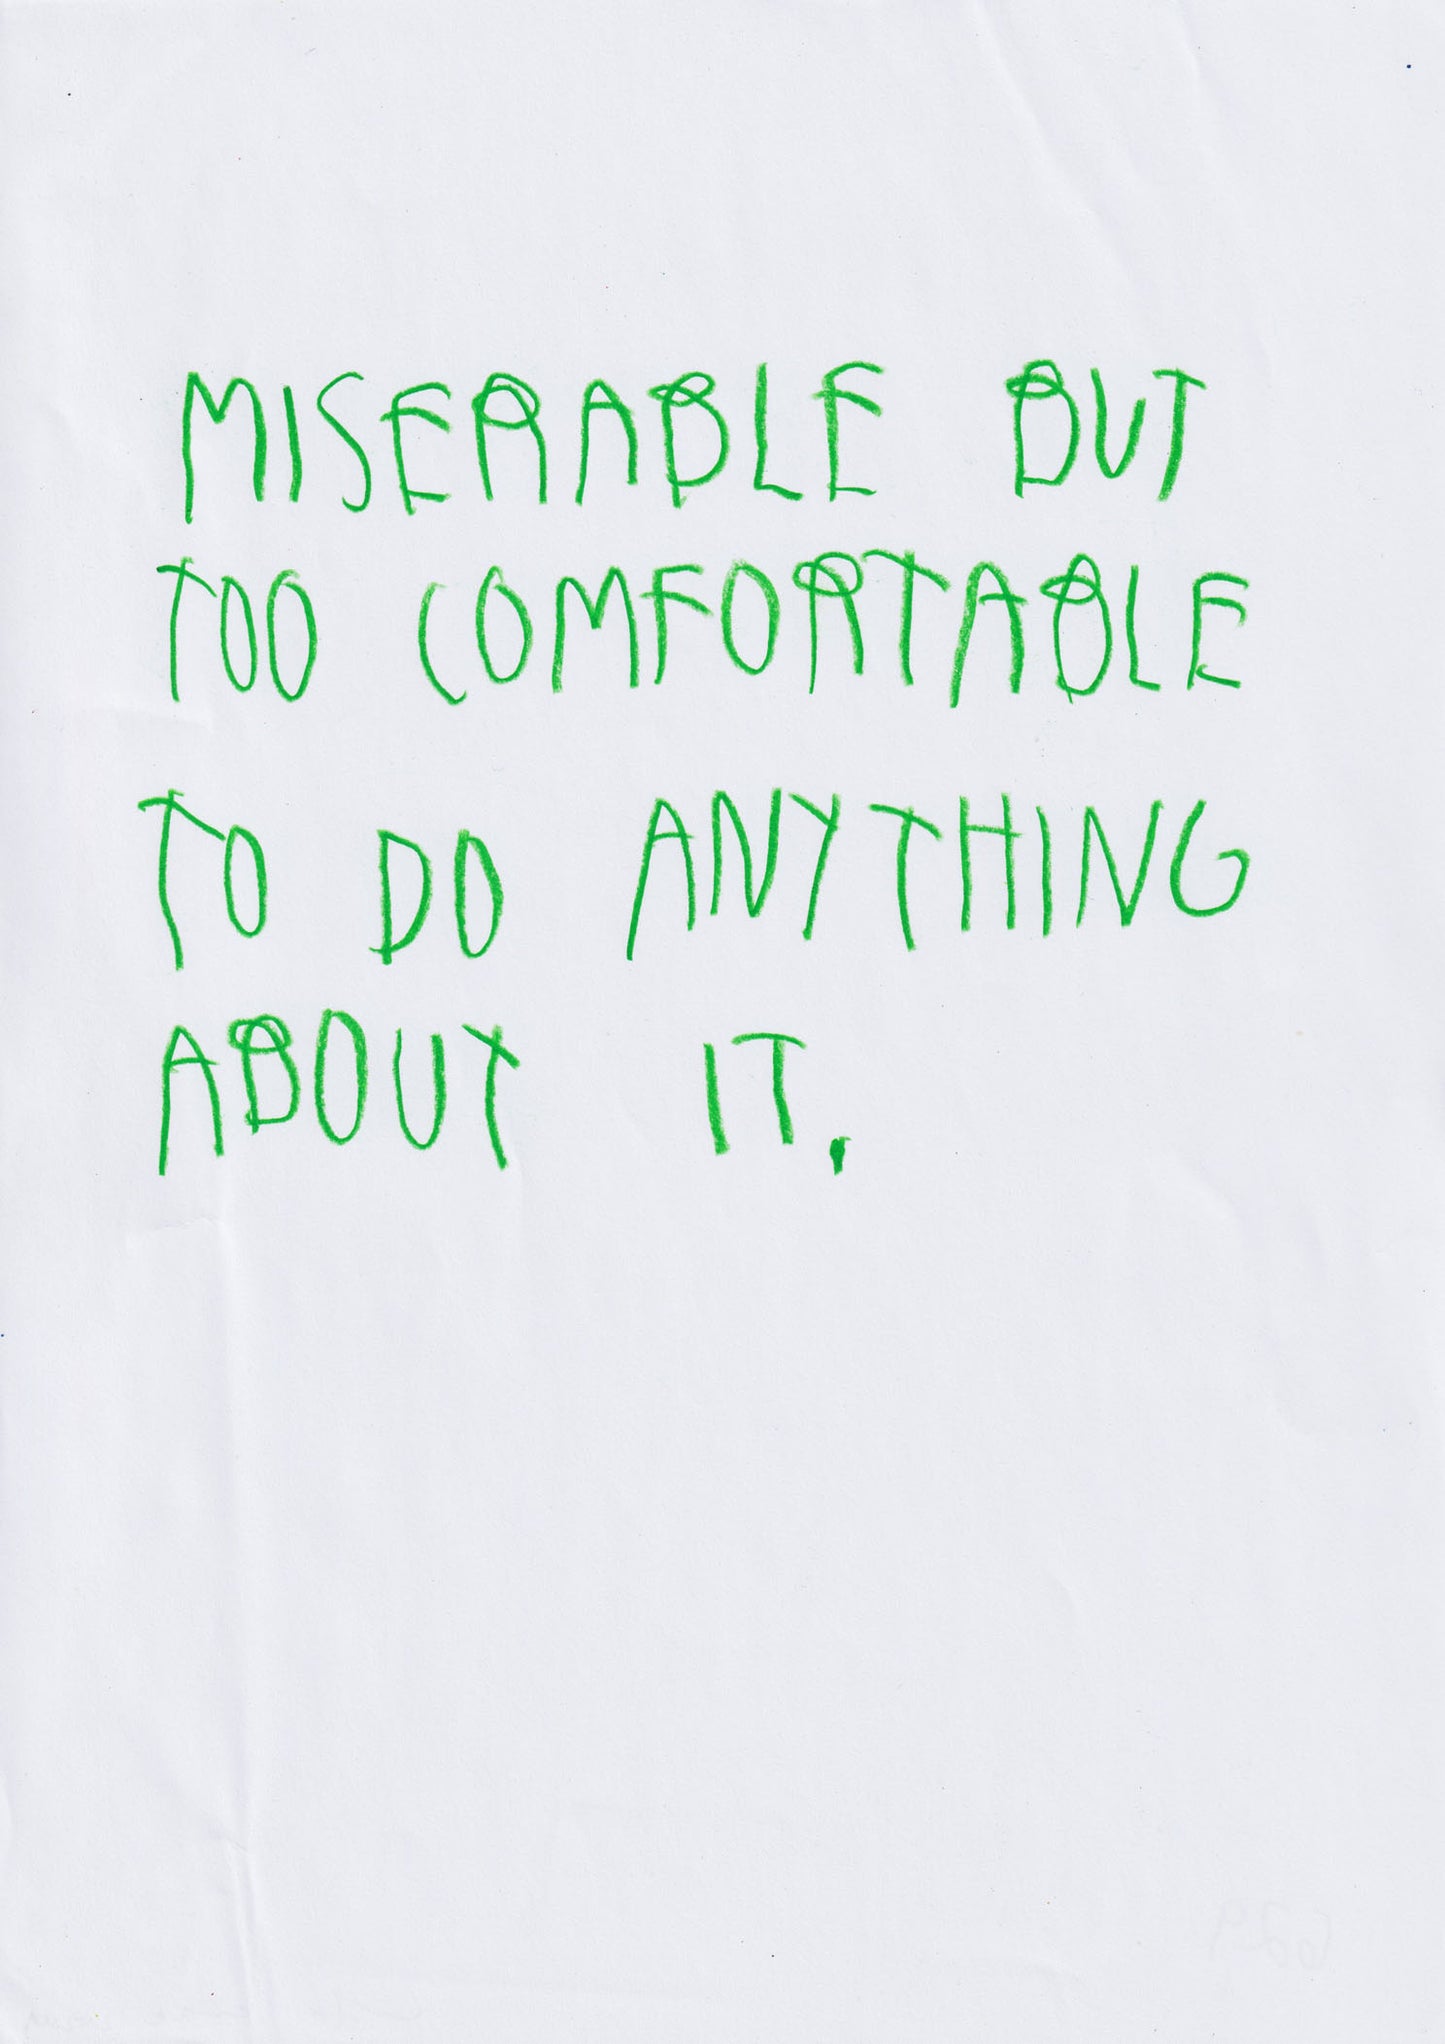 MISERABLE BUT
TOO COMFORTABLE
TO DO ANYTHING
ABOUT IT.